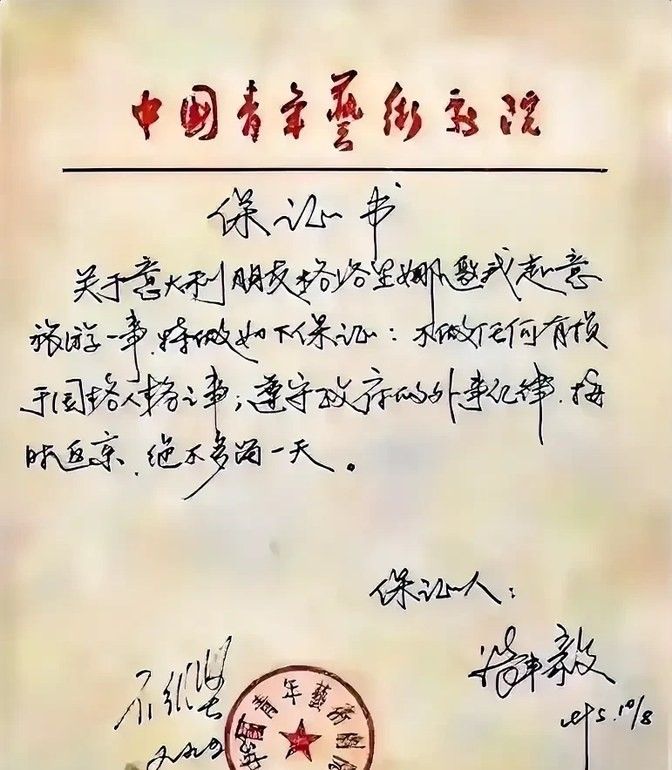 中国青年藝術剧院
保证书
关于意大利朋友格洛里娜邀我赴意
旅游一事,特做如下保证:不做任何有损
于国格人格之事;遵守政府的外事纪律,按
时返京,绝不多留一天。
保证人:
石维坚
10/8
青年藝術劇院